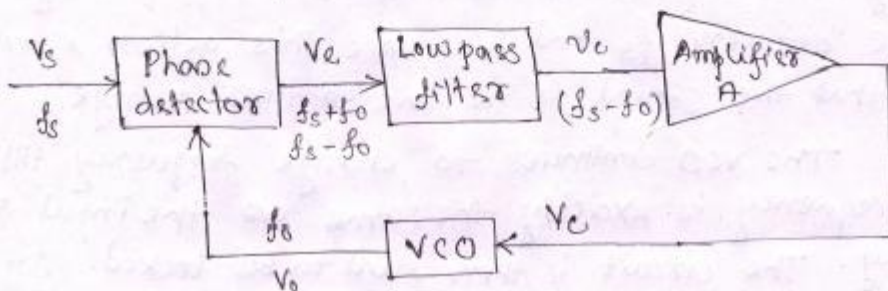 Vs
fs
Phase
detector
Ve
fs+fo
fs-fo
Low pass
filter
Vc
(fs-fo)
Amplifier
A
Vc
VCO
fo
Vo